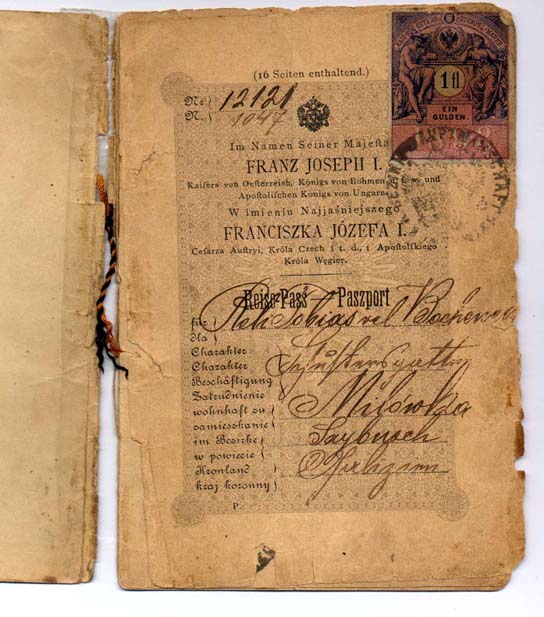 (16 Seiten enthaltend.)
1 fl
EIN
GULDEN.
№ 12121
N. 1047
Im Namen Seiner Majestä
FRANZ JOSEPH I.
Kaisers von Oesterreich, Königs von Böhmen und
Apostolischen Königs von Ungarn
W imieniu Najjaśniejszego
FRANCISZKA JÓZEFA I.
Cesarza Austryi, Króla Czech i t. d., i Apostolskiego
Króla Węgier.
Reise-Pass Paszport
für Tobias vel
dla
Charakter
Charakter
Beschäftigung
Zatrudnienie
wohnhaft zu Milówka
zamieszkanie
im Bezirke Saybusch
w powiecie
Kronland Galizien
kraj koronny
P.